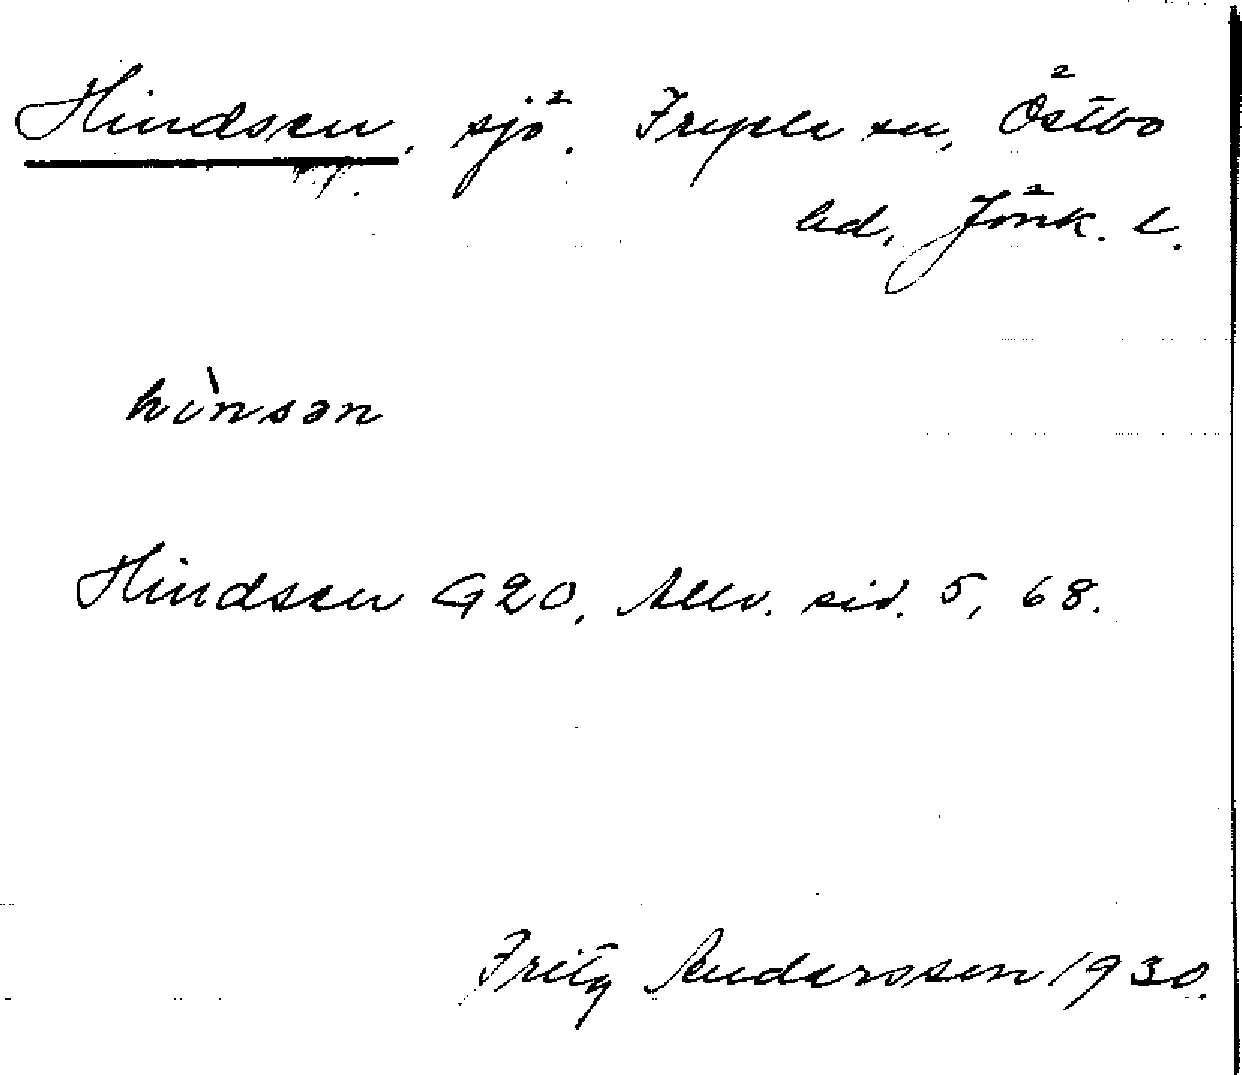 Hindsen, sjö. Fryele sn, Östbo
hd, Jönk. l.
hìnsən
Hindsen G20. Allv. sid. 5, 68.
Fritz Andersson 1930.